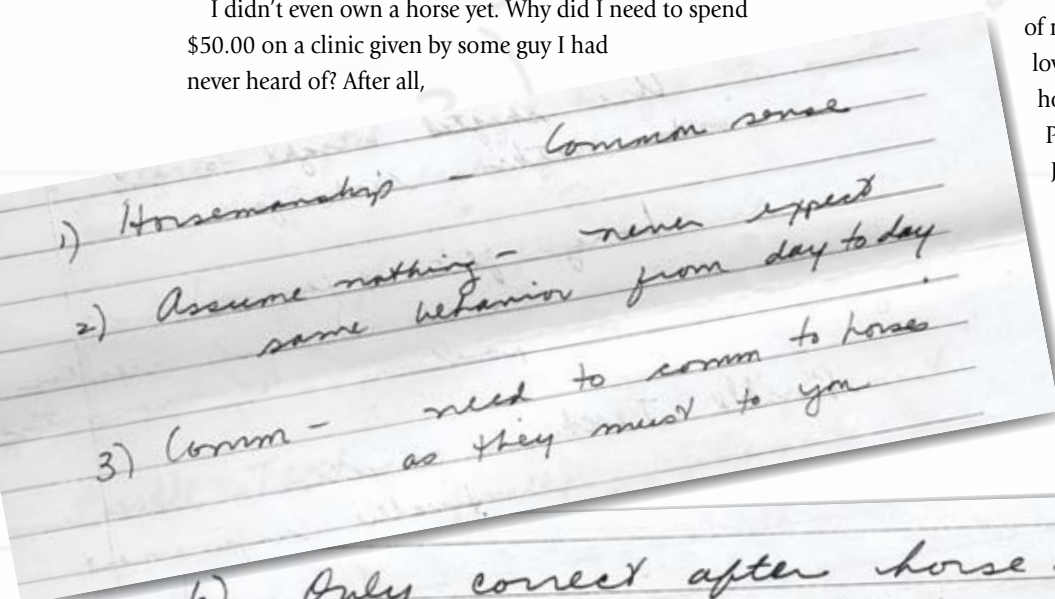 I didn’t even own a horse yet. Why did I need to spend
$50.00 on a clinic given by some guy I had
never heard of? After all,
of
1) Horsemanship – Common sense
2) Assume nothing – never expect
same behavior from day to day
3) Comm – need to comm to horses
as they must to you
Only correct after horse